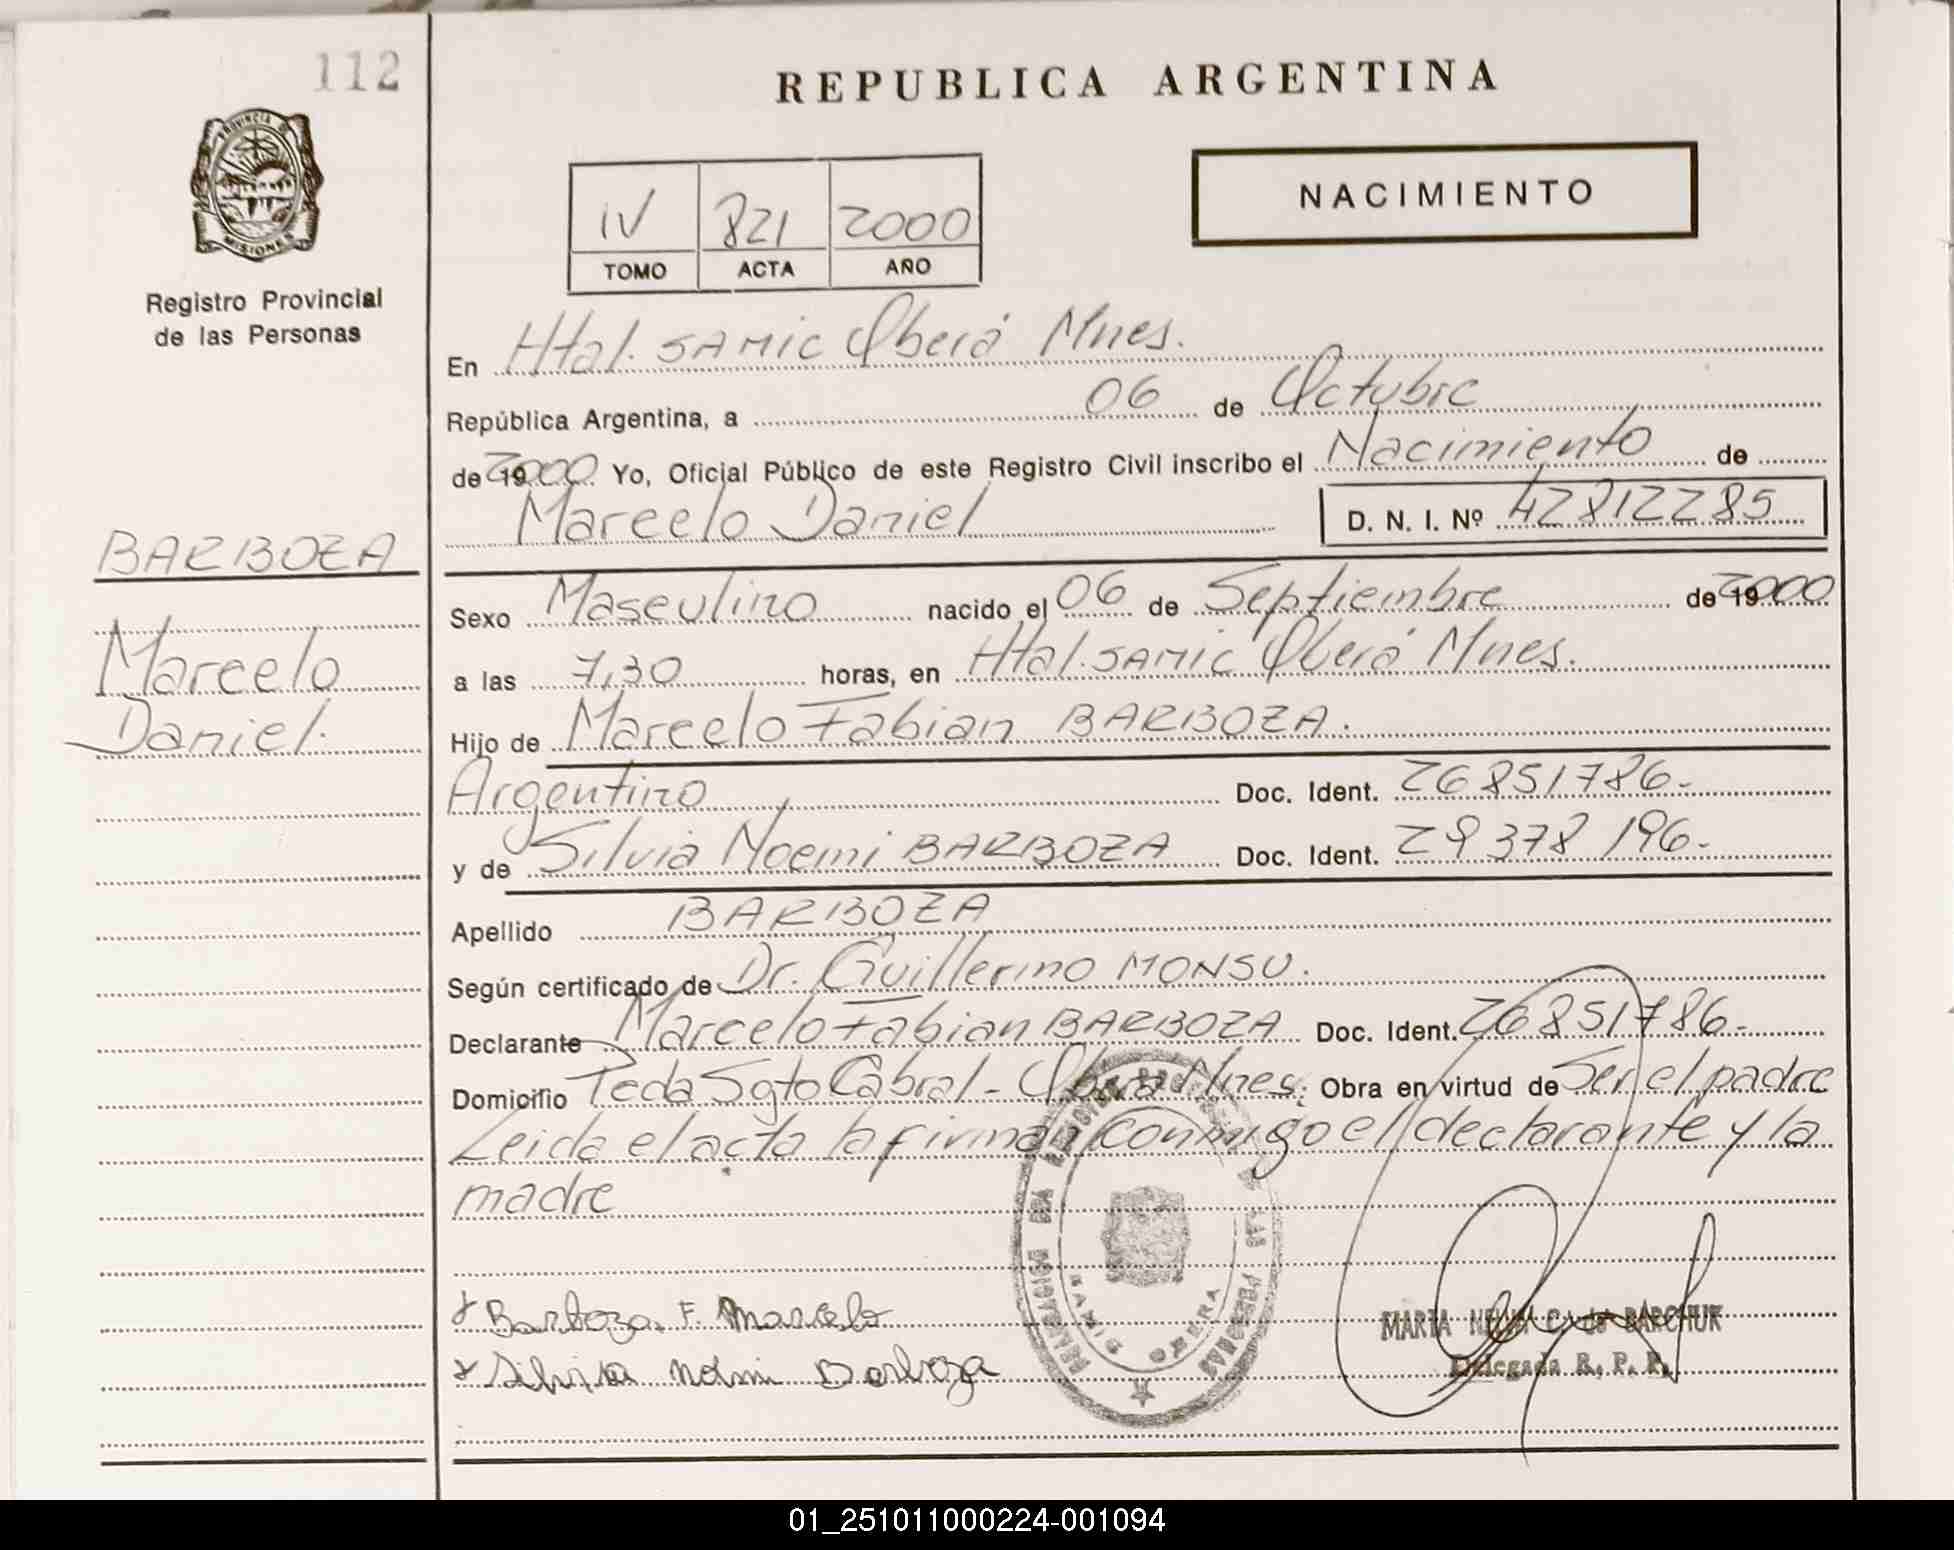 112
REPUBLICA ARGENTINA
PROVINCIA DE
MISIONES
Registro Provincial
de las Personas
IV 821 2000
TOMO ACTA AÑO
NACIMIENTO
En Htal. SAMIC Oberá Mnes.
República Argentina, a 06 de Octubre
de 2000 Yo, Oficial Público de este Registro Civil inscribo el Nacimiento de
Marcelo Daniel D. N. I. Nº 42812285
BARBOZA
Marcelo
Daniel.
Sexo Masculino nacido el 06 de Septiembre de 2000
a las 7,30 horas, en Htal. SAMIC Oberá Mnes.
Hijo de Marcelo Fabian BARBOZA.
Argentino Doc. Ident. 26851786.-
y de Silvia Noemi BARBOZA Doc. Ident. 29378196.-
Apellido BARBOZA
Según certificado de Dr. Guillermo MONSU.
Declarante Marcelo Fabian BARBOZA Doc. Ident. 26851786.-
Domicilio Pcda Sgto Cabral - Oberá Mnes. Obra en virtud de Ser el padre
Leida el acta la firman conmigo el declarante y la
madre
x Barboza. F. Marcelo
x Silvia Noemi Barboza
SAMIC OBERA
MARTA BARCHUK
Delegada R. P. P.
01_251011000224-001094